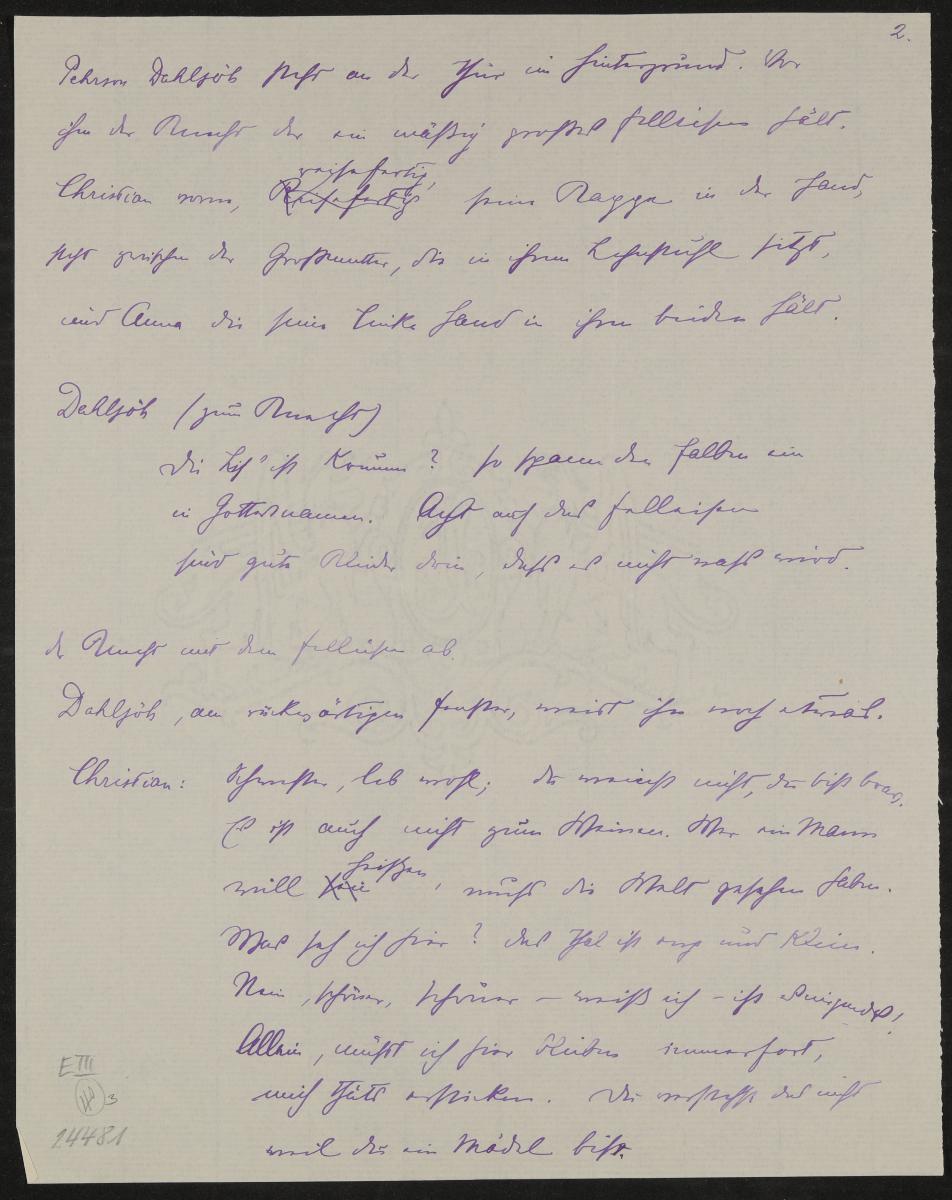 2.
Pehrson Dahlsjöh steht an der Thür im Hintergrund. Vor
ihm der Knecht der ein mäßig großes Felleisen hält.
reisefertig,
Christian vorne, Reisefertig seine Kappe in der Hand,
steht zwischen der Großmutter, die in ihrem Lehnstuhl sitzt,
und Anna die seine linke Hand in ihren beiden hält.
Dahlsjöh (zum Knecht)
Die Lis' ist krumm? so spann den Falben ein
in Gottesnamen. Acht auf das Felleisen
sind gute Kleider drin, dass es nicht nass wird.
der Knecht mit dem Felleisen ab.
Dahlsjöh, am rückwärtigen Fenster, weist ihm noch etwas.
Christian: Schwester, leb wohl; du weinst nicht, du bist brav.
Es ist auch nicht zum Weinen. Wer ein Mann
heißen
will sein, muss die Welt gesehen haben.
Was sah ich hier? das Thal ist eng und klein.
Nein, schöner, schöner – weiß ich – ists
Allein, müsst ich hier kleben immerfort,
mich thäts ersticken. Du verstehst das nicht
weil du ein Mädel bist.
E III
3
24481